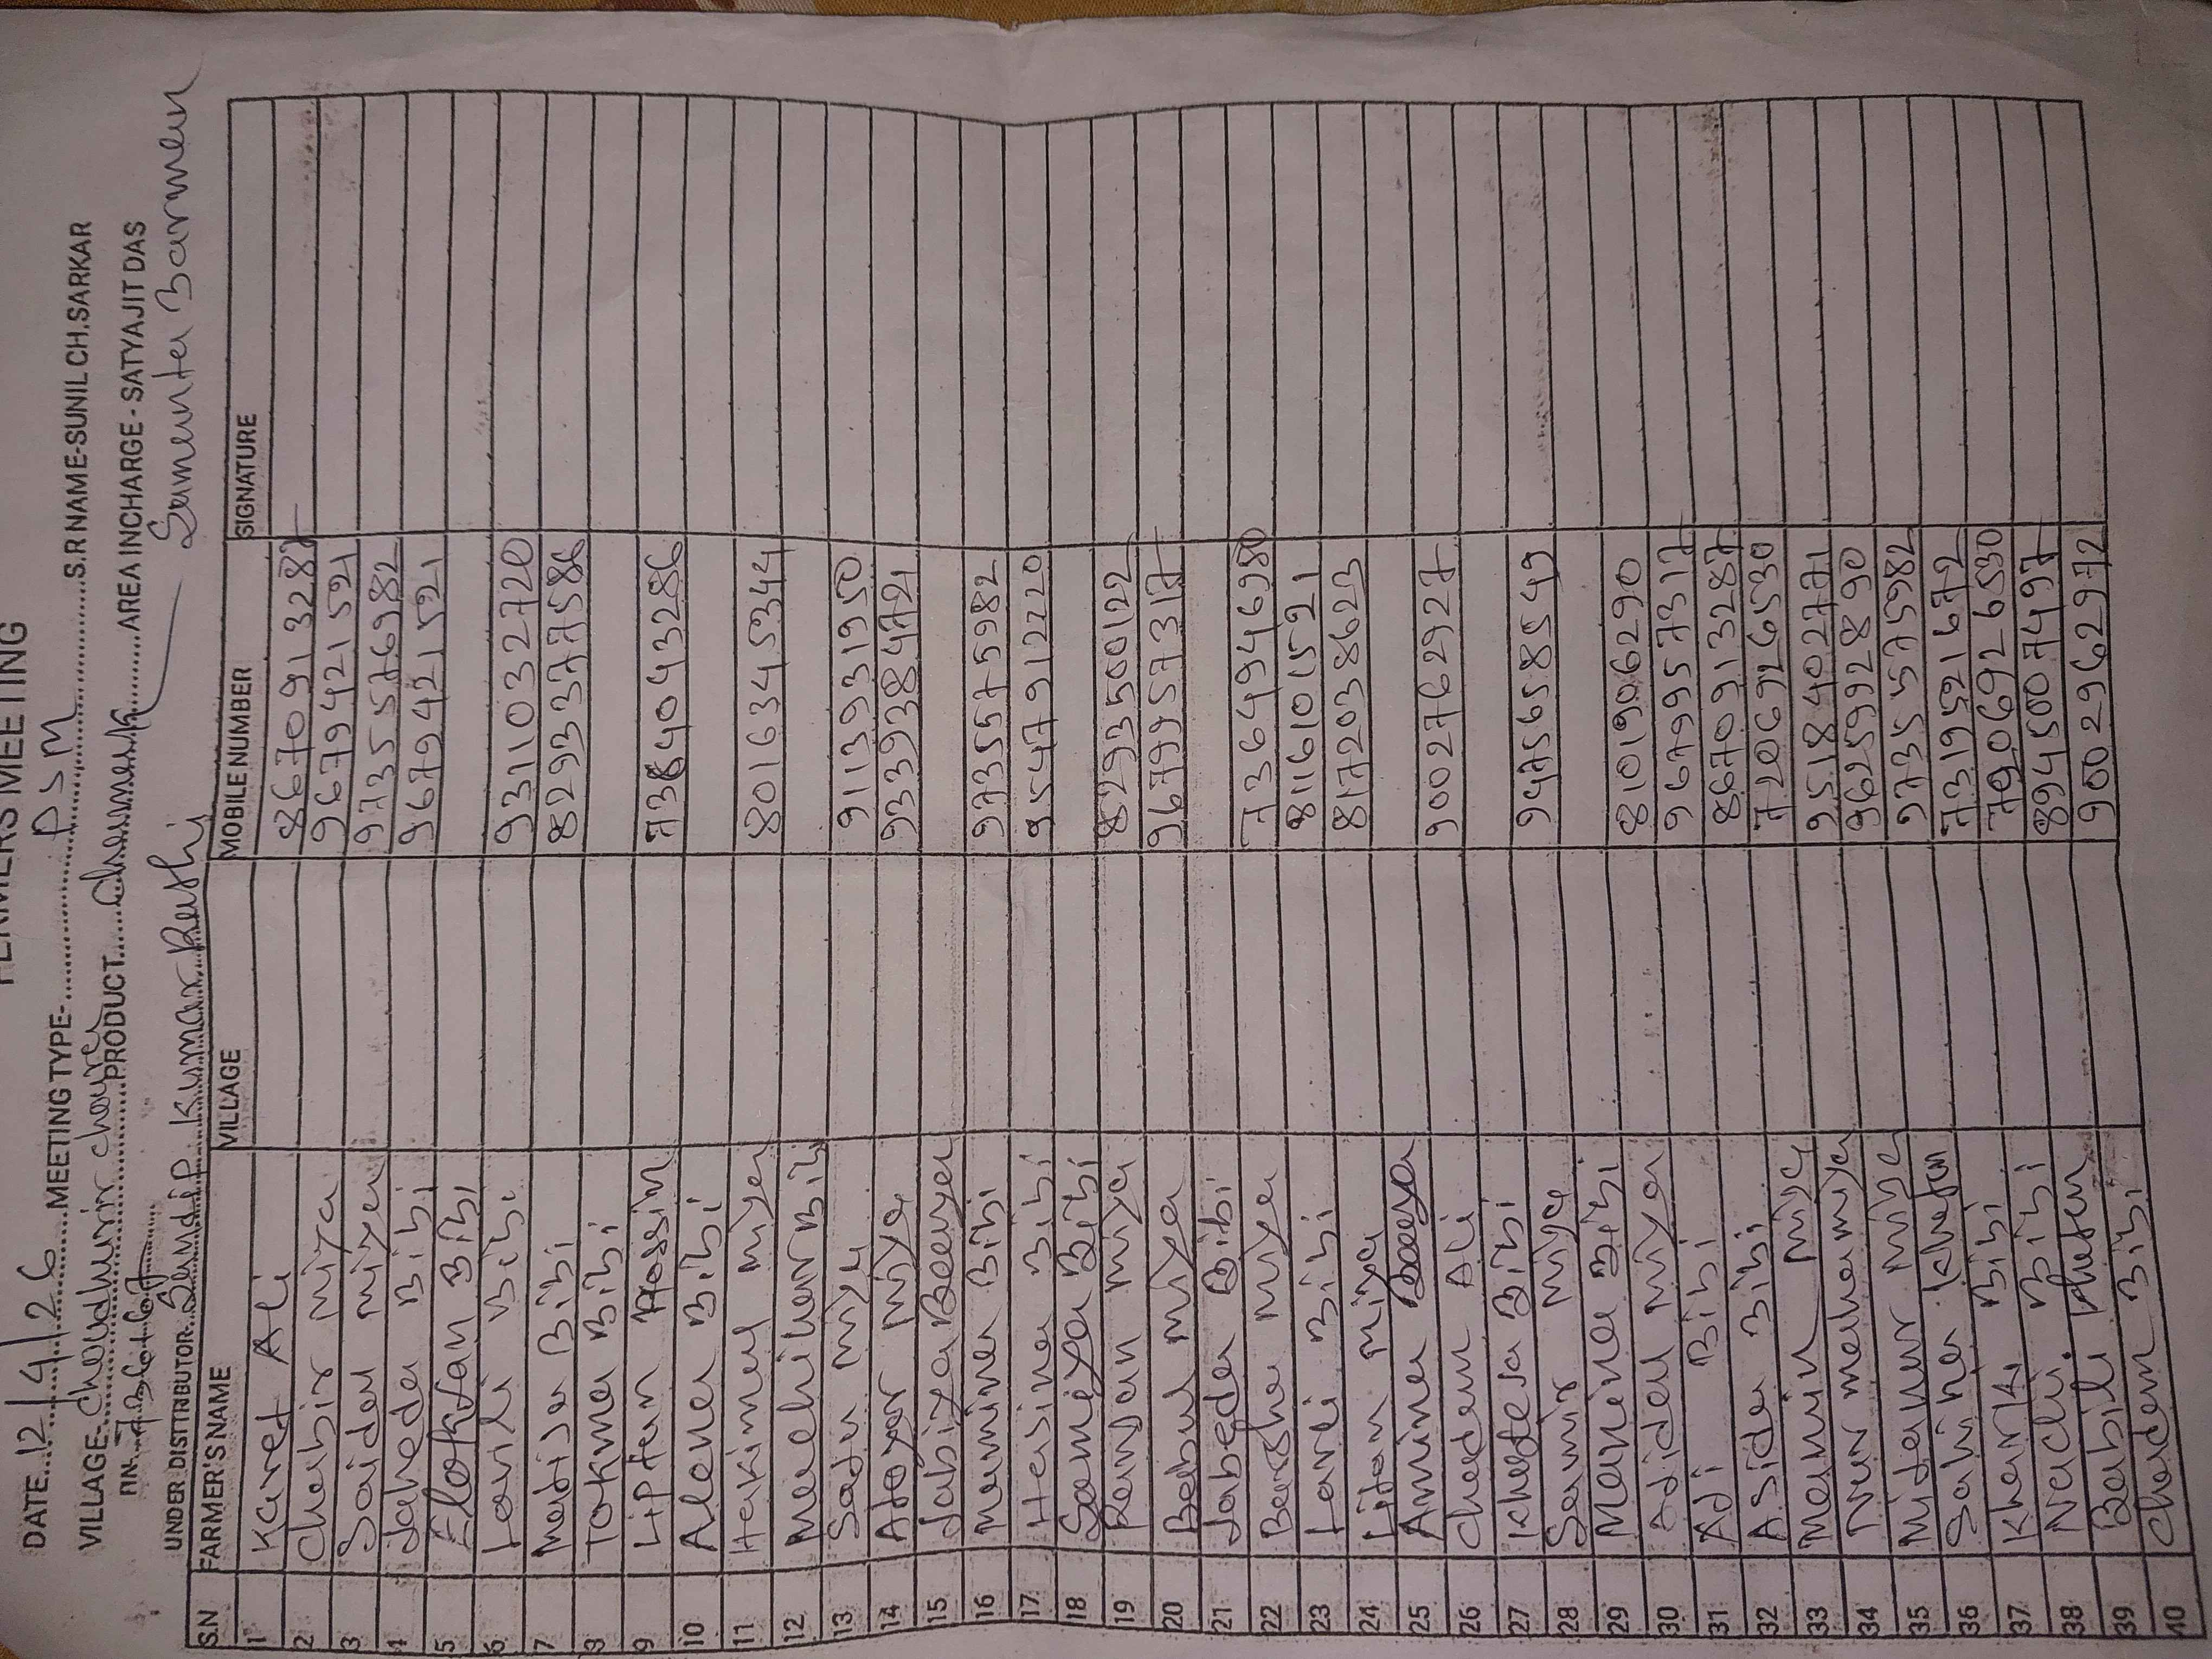 FERMERS MEETING
DATE...12/4/26...MEETING TYPE-...PSM...S.R NAME-SUNIL.CH.SARKAR
VILLAGE-Choudhurir choura...PRODUCT...Chamak...AREA INCHARGE - SATYAJIT DAS
PIN-736167
UNDER DISTTRIBUTOR-Sandip Kumar Rakshi — Samenta Barman
S.N FARMER'S NAME VILLAGE MOBILE NUMBER SIGNATURE
1 Karet Ali 8670913287
2 Chabir miya 9679421521
3 Saidal miya 9735576982
4 Jaheda Bibi 9679421521
5 Elokjan Bibi
6 Lavli Bibi 9311032720
7 Mafija Bibi 8293377586
8 Tokma Bibi
9 Liptan Hossin 7384043286
10 Alena Bibi
11 Hakimul miya 8016345344
12 Muchihar Bibi
13 Sadu miya 9113931950
14 Atoyar miya 9339384721
15 Jabiya Beeuya
16 Mumina Bibi 9735575982
17 Hasina Bibi 9547912220
18 Samiya Bibi
19 Ranjan miya 8293500122
20 Babul miya 9679957317
21 Jabeda Bibi
22 Barsha miya 7364946980
23 Larli Bibi 8116101521
24 Liton miya 8172038623
25 Amina Beeya
26 Chedam Ali 9002762927
27 Khateja Bibi
28 Samir miya 9475658549
29 Manena Bibi
30 Ajidal miya 8101906290
31 Aji Bibi 9679957317
32 Asida Bibi 8670913287
33 Mahin miya 7206926530
34 Nur mahamiya 9518402771
35 Mijanur miya 9625992890
36 Sahina khatun 9735575982
37 Kharki Bibi 7319521672
38 Nachi. Bibi 7906926530
39 Babili khatun 8945007497
40 Chaden Bibi 9002962972